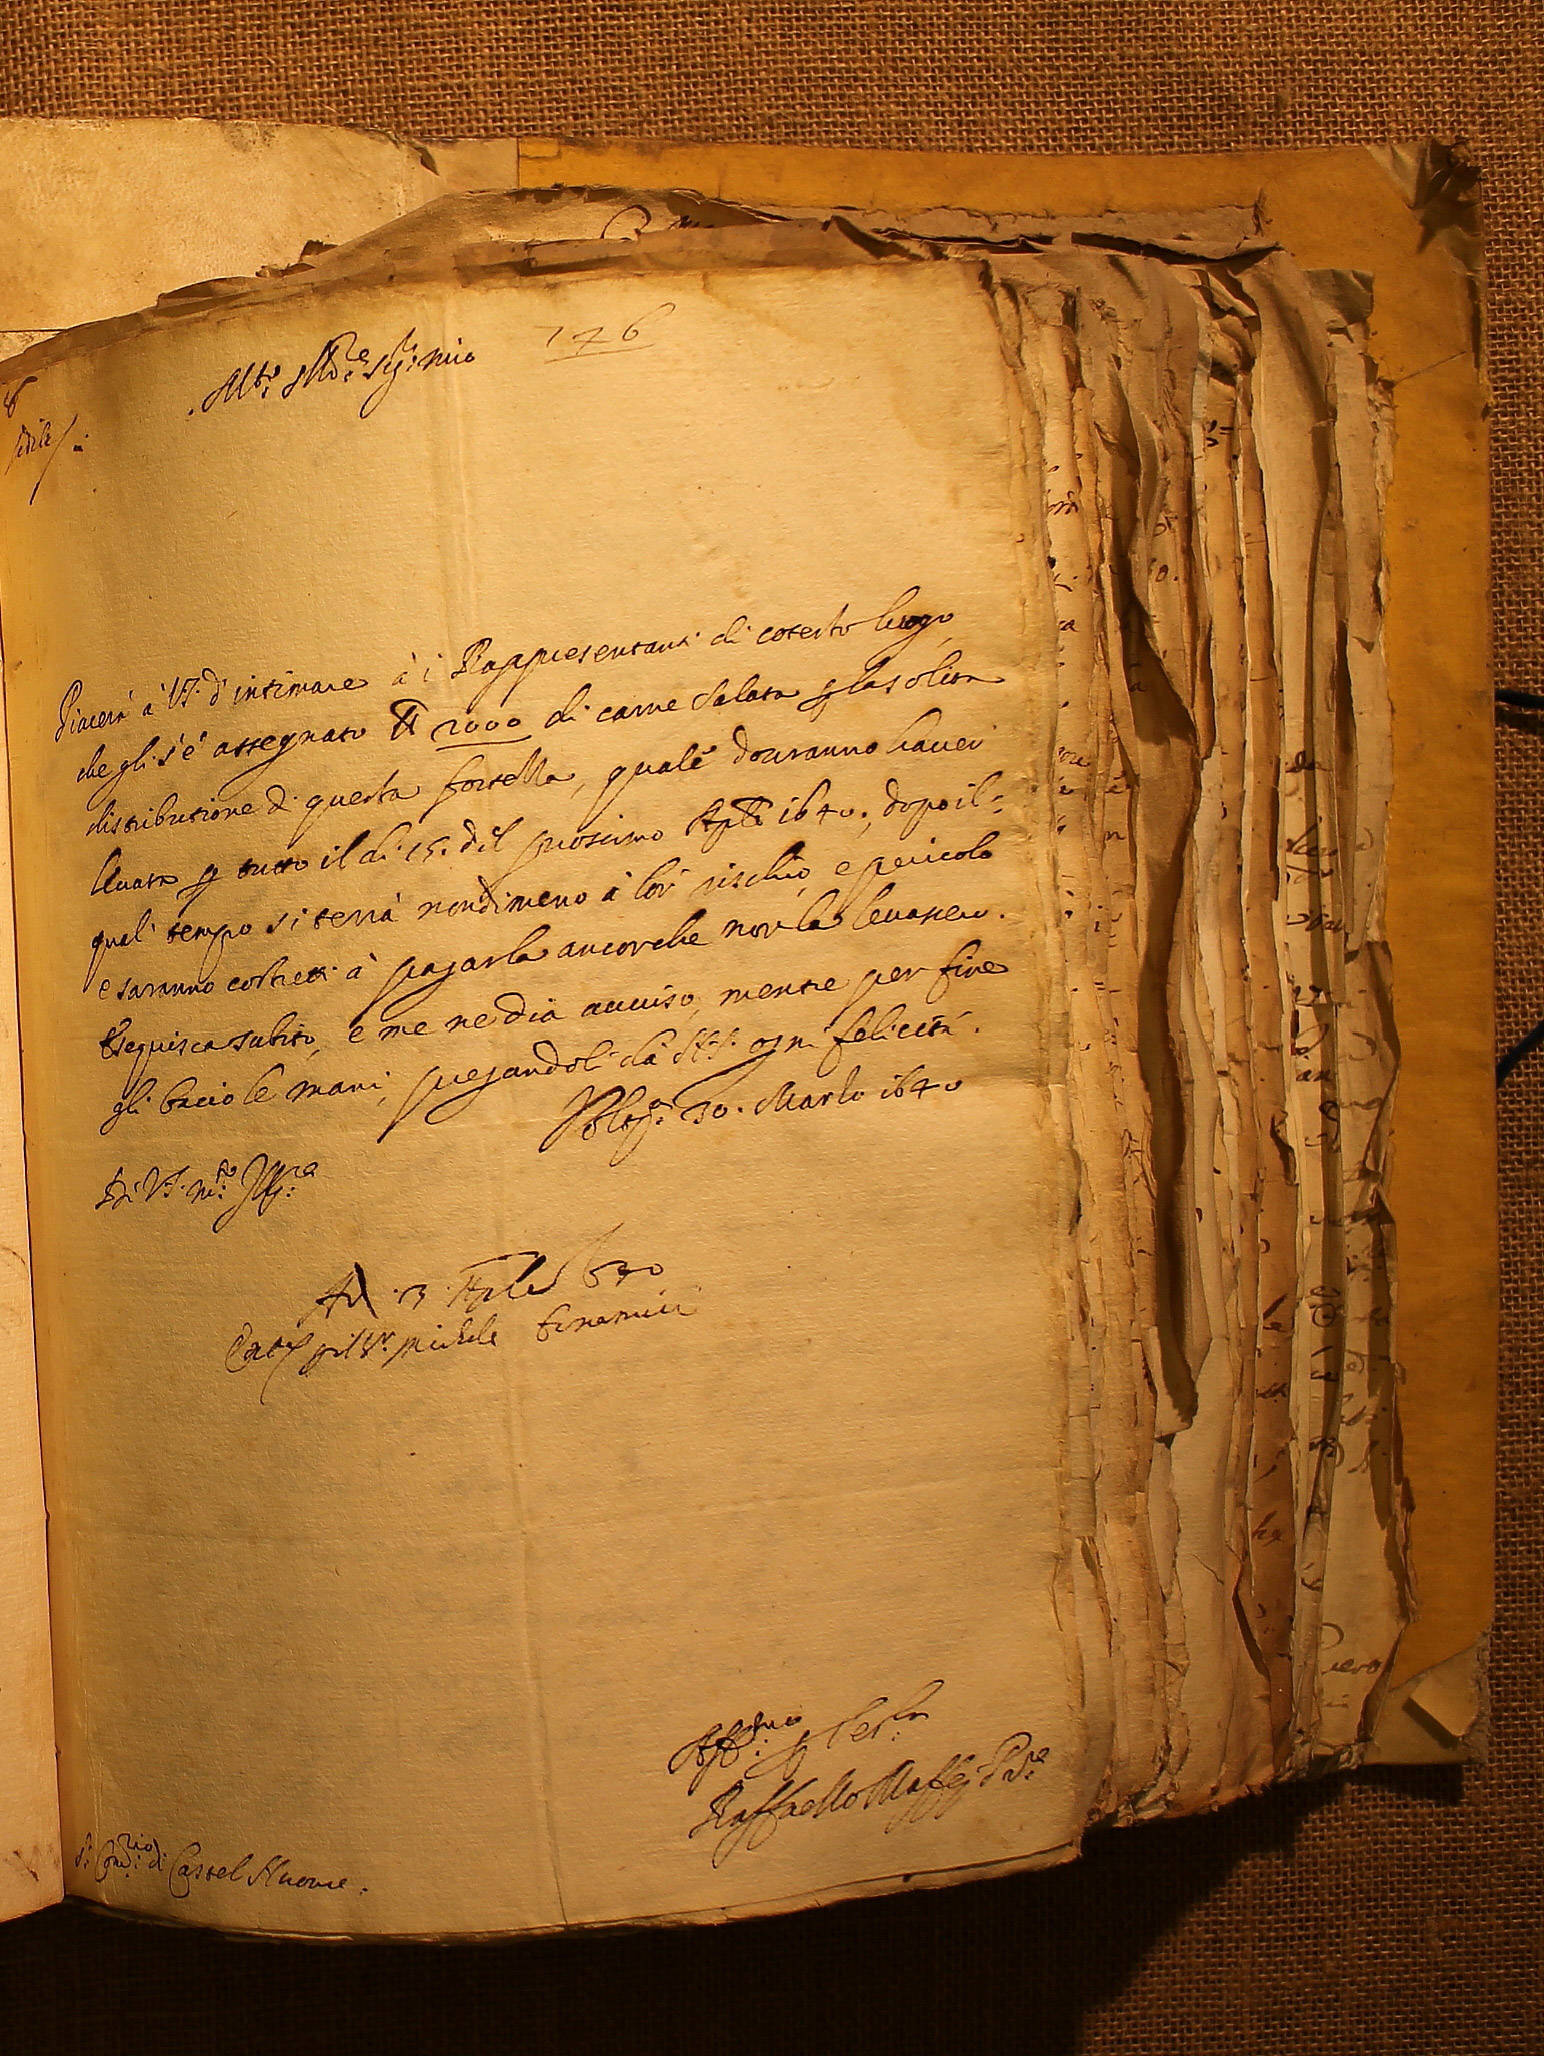 146
Molto Ill:re Sig:r mio
Piacerà à V.S. d'intimare à i Rappresentanti di cotesto luogo
che gli s'è assegnato ℔ 2000 di carne salata p la solita
distributione di questa fortezza, quale douranno hauer
leuata p tutto il di 15. del prossimo Aple 1640, dopo il=
qual tempo si terrà nondimeno à lor rischio, e pericolo
e saranno costretti à pagarla ancorche non la leuassero.
Esequisca subito, e me ne dia auuiso, mentre per fine
gli bacio le mani, pregandoli da N.S. ogni felicità.
30. Marzo 1640
Di V.S. m:to Ill:re
Ad 3 Aple 1640
Michele
Aff:mo p ser:la
Raffaello Maffej
di Castel Nuouo: